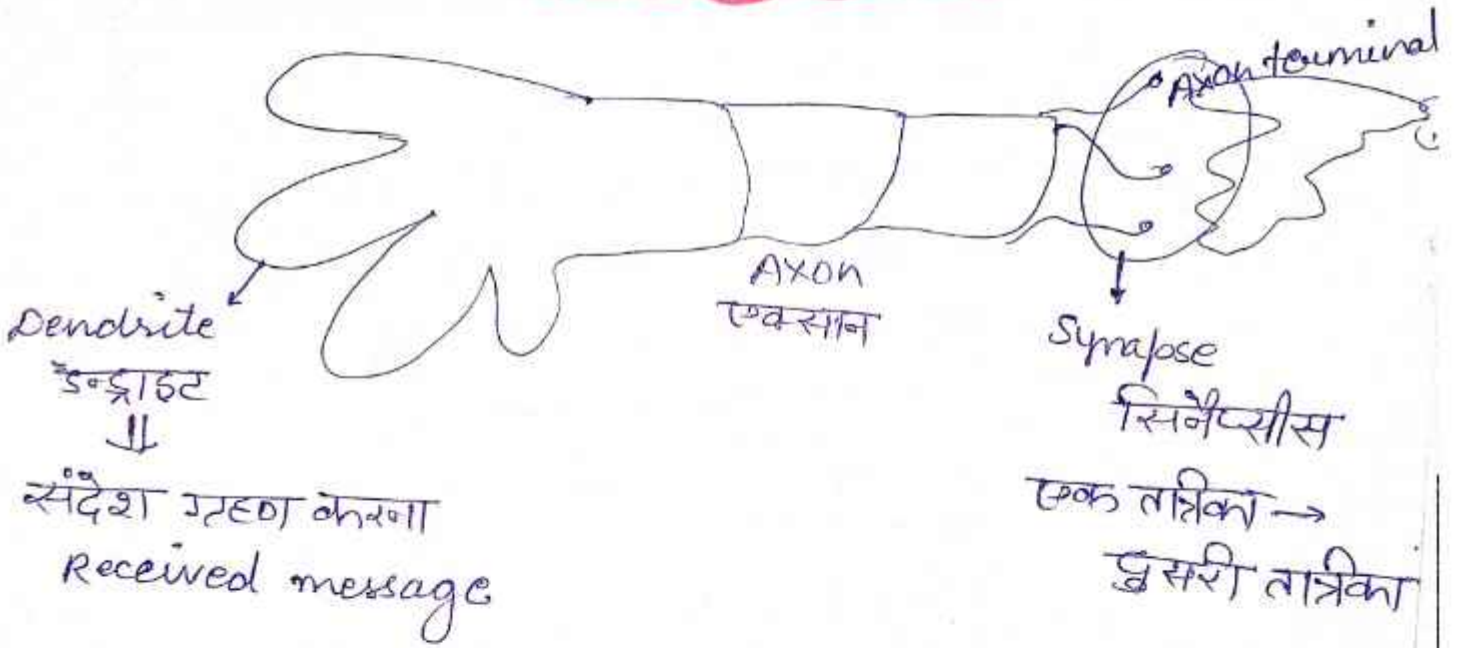 Axon terminal
Axon
एक्सान
Dendrite
डेन्ड्राइट
संदेश ग्रहण करना
Received message
Synapse
सिनैप्सीस
एक तंत्रिका →
दुसरी तंत्रिका